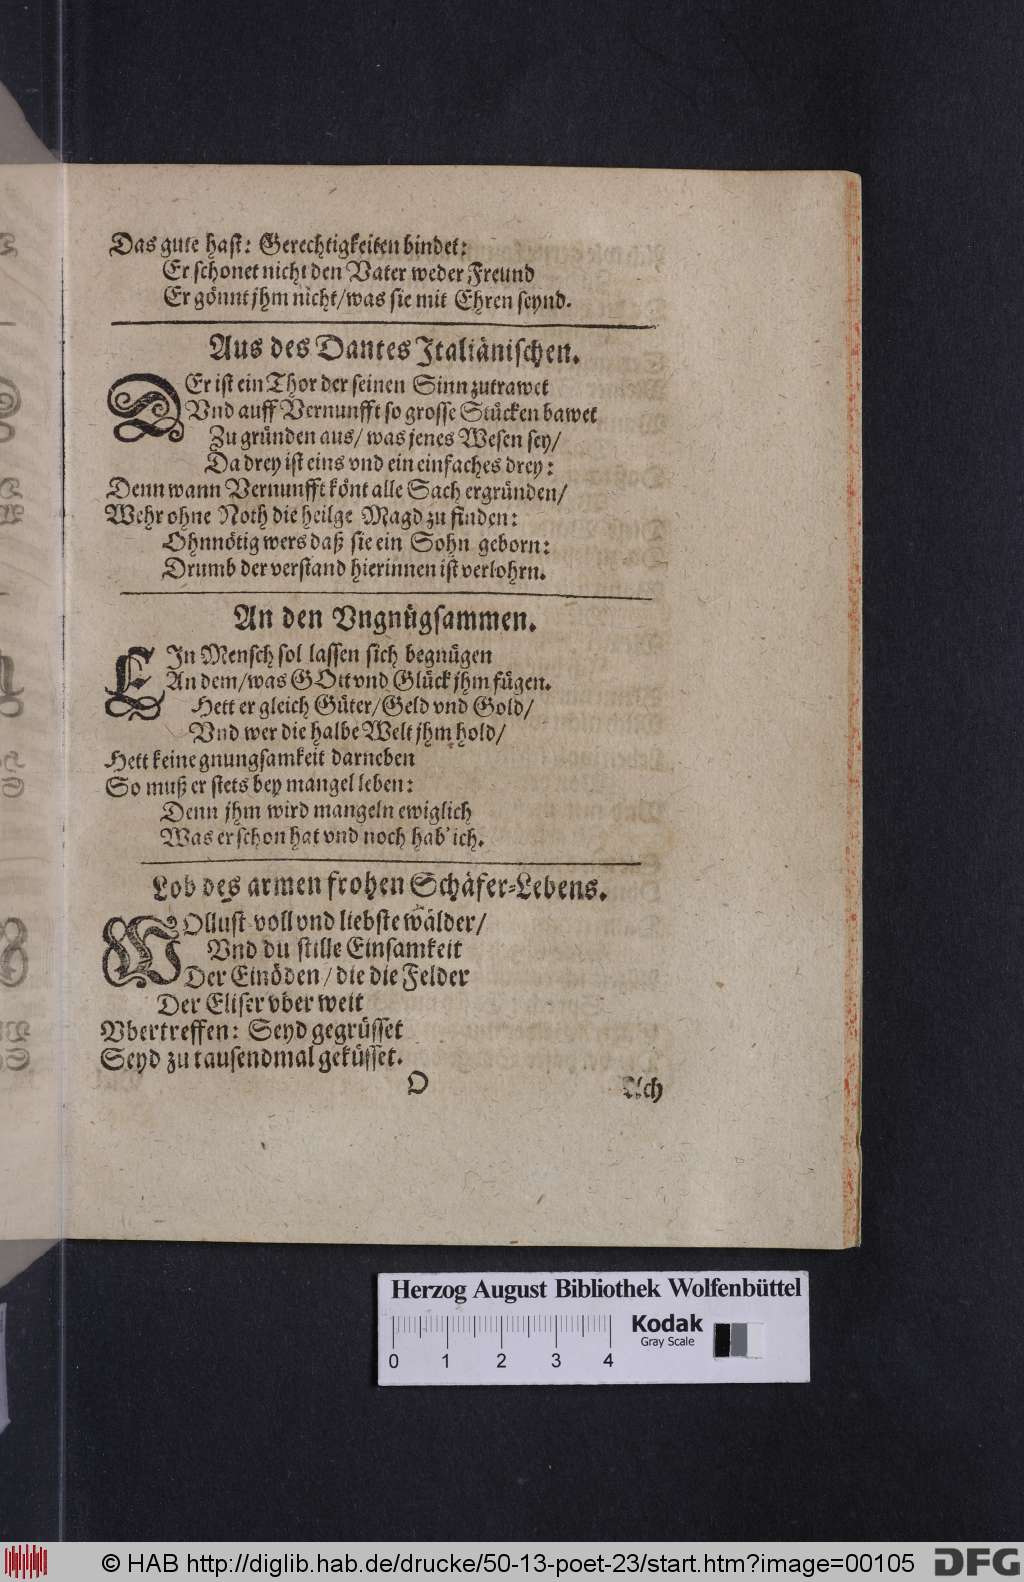 Das gute haſt: Gerechtigkeiten bindet:
Er ſchonet nicht den Vater weder Freund
Er goͤnnt jhm nicht/was ſie mit Ehren ſeynd.
Aus des Dantes Italiaͤniſchen.
DEr iſt ein Thor der ſeinen Sinn zutrawet
Vnd auff Vernunfft ſo groſſe Stuͤcken bawet
Zu gruͤnden aus/ was jenes Weſen ſey/
Da drey iſt eins vnd ein einfaches drey:
Denn wann Vernunfft koͤnt alle Sach ergruͤnden/
Wehr ohne Noth die heilge Magd zu finden:
Ohnnoͤtig wers daß ſie ein Sohn geborn:
Drumb der verſtand hierinnen iſt verlohrn.
An den Vngnuͤgſammen.
EIn Menſch ſol laſſen ſich begnuͤgen
An dem/was GOtt vnd Gluͤck jhm fuͤgen.
Hett er gleich Guͤter/Geld vnd Gold/
Vnd wer die halbe Welt jhm hold/
Hett keine gnungſamkeit darneben
So muß er ſtets bey mangel leben:
Denn jhm wird mangeln ewiglich
Was er ſchon hat vnd noch hab' ich.
Lob des armen frohen Schaͤfer-Lebens.
WOlluſt voll vnd liebſte waͤlder/
Vnd du ſtille Einſamkeit
Der Einoͤden/ die die Felder
Der Eliſer vber weit
Vbertreffen: Seyd gegruͤſſet
Seyd zu tauſendmal gekuͤſſet.
O Ach
Herzog August Bibliothek Wolfenbüttel
Kodak
Gray Scale
0 1 2 3 4
© HAB http://diglib.hab.de/drucke/50-13-poet-23/start.htm?image=00105 DFG